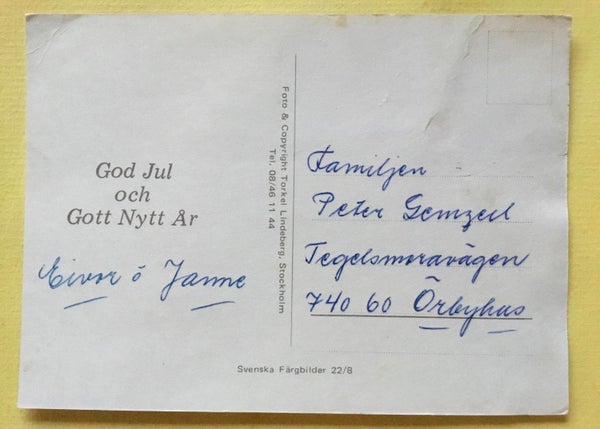 God Jul
och
Gott Nytt År
Eivor o Janne
Foto & Copyright Torkel Lindeberg, Stockholm
Tel. 08/46 11 44
Familjen
Peter Gemzell
Tegelsmoravägen
740 60 Örbyhus
Svenska Färgbilder 22/8